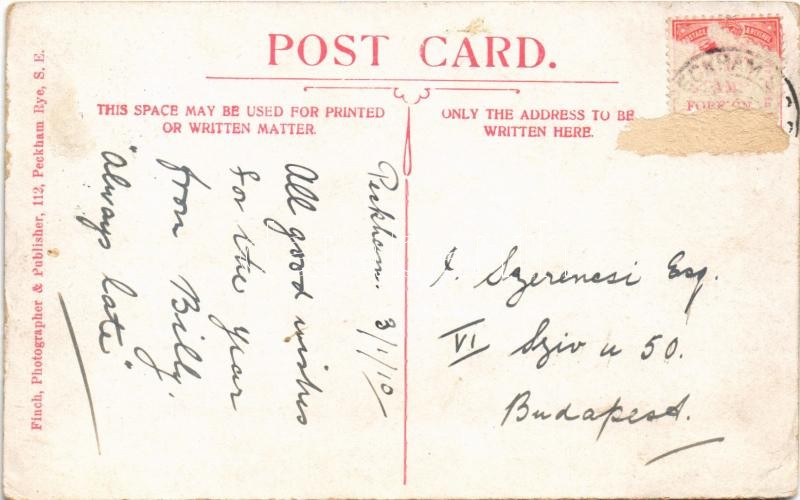 POST CARD.
THIS SPACE MAY BE USED FOR PRINTED
OR WRITTEN MATTER.
ONLY THE ADDRESS TO BE
WRITTEN HERE.
Finch, Photographer & Publisher, 112, Peckham Rye, S. E.
Peckham. 3/1/10
All good wishes
for the year
from Billy.
"always late"
J. Szerencsi Esq.
VI Sziv u 50.
Budapest.
POSTAGE & REVENUE
PECKHAM
FOREIGN